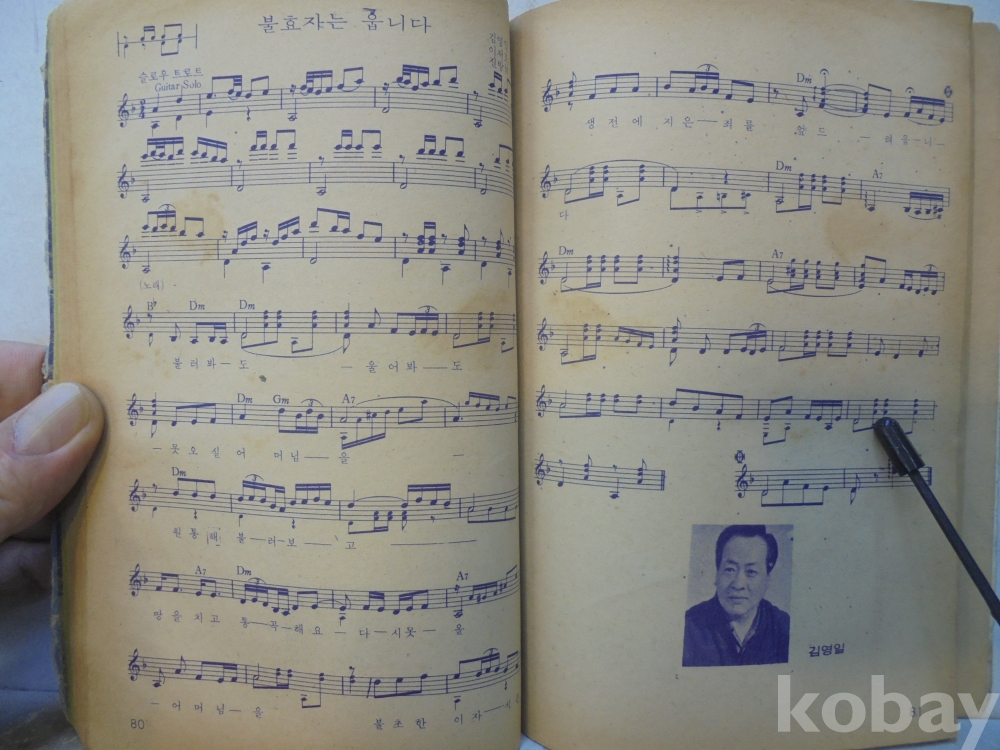 불효자는 웁니다
슬로우 트로트
Guitar Solo
(노래)
B♭ Dm Dm
불러봐—도 —울어봐—도
Dm Gm A7
—못오실어머님—을 —
Dm
원통해불—러보—고
A7 Dm A7
땅을치고통—곡—해요—다—시못—올
—어머님—을 불초한 이자—
80
Dm
생전에지은—죄를 엎드 —려웁—니—
Dm A7
다
Dm A7
김영일
kobay